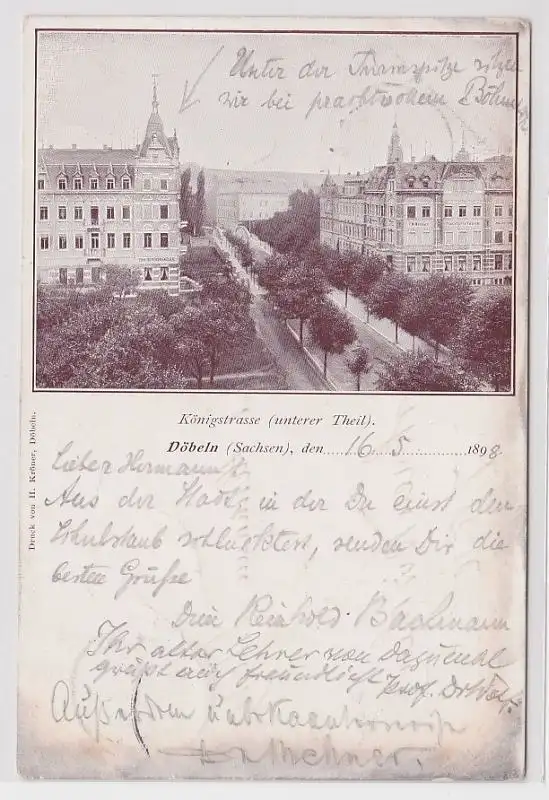 Unter der Turmspitze sitzen
wir bei prachtvollem
Königstrasse (unterer Theil).
Döbeln (Sachsen), den 16. 5. 1898
Druck von H. Kröner, Döbeln.
Lieber Hermann!
Aus der Stadt, in der Du einst den
Schulstaub schlucktest, senden Dir die
besten Grüße
Dein Reinhold Bachmann
Ihr alter Lehrer von
grüßt auch freundlichst Prof. Dr
Außerdem unbekannterweise